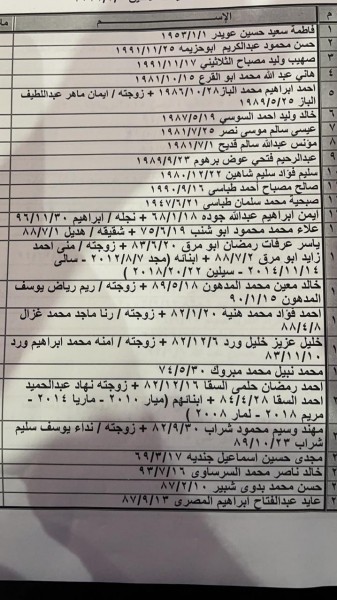 م الإســـــم
١ فاطمة سعيد حسين عويدر ١٩٥٣/١/١
٢ حسن محمود عبدالكريم ابوحزيمه ١٩٩١/١١/٢٥
٣ صهيب وليد مصباح الثلاثيني ١٩٩١/١١/١٧
٤ هاني عبد الله محمد ابو القرع ١٩٨١/١٠/١٥
٥ احمد ابراهيم محمد الباز ١٩٨٦/١٠/٢٨ + زوجته / ايمان ماهر عبداللطيف
الباز ١٩٨٩/٥/٢٥
٦ خالد وليد احمد السوسي ١٩٨٧/٥/١٩
٧ عيسى سالم موسى نصر ١٩٨١/٧/٢٥
٨ مؤنس عبدالله سالم قديح ١٩٨١/٧/١
٩ عبدالرحيم فتحي عوض برهوم ١٩٨٩/٩/٢٣
١ سليم فؤاد سليم شاهين ١٩٨٠/١٢/٢٢
١ صالح مصباح احمد طباسي ١٩٩٠/٩/١٦
١ صبحية محمد سلمان طباسي ١٩٤٧/٦/٢١
١ ايمن ابراهيم عبدالله جوده ٦٨/١/١٨ + نجله / ابراهيم ٩٦/١١/٣٠
١ علاء محمد محمود ابو شنب ٧٥/٦/١٩ + شقيقه / هديل ٨٨/٧/١
١ ياسر عرفات رمضان ابو مرق ٨٣/٦/٢٠ + زوجته / منى احمد
زايد ابو مرق ٨٨/٧/٢ + ابنائه (مجد ٢٠١٢/٨/٧ - سالي
٢٠١٤/١١/١٤ - سيلين ٢٠١٨/٢٠/٢٢ )
١ خالد معين محمد المدهون ٨٩/٥/١٨ + زوجته / ريم رياض يوسف
المدهون ٩٠/١/١٥
١ احمد فؤاد محمد هنية ٨٢/١/٢٠ + زوجته / رنا ماجد محمد غزال
٨٨/٤/٨
١ خليل عزيز خليل ورد ٨٢/١٢/٦ + زوجته / امنه محمد ابراهيم ورد
٨٣/١١/١٠
١ محمد نبيل محمد مبروك ٧٤/٥/٣٠
٢ احمد رمضان حلمى السقا ٨٢/١٢/١٦ + زوجته نهاد عبدالحميد
احمد السقا ٨٤/٤/٢٨ + ابنائهم (ميار ٢٠١٠ - ماريا ٢٠١٤ -
مريم ٢٠١٨ - لمار ٢٠٠٨ )
٢ مهند وسيم محمود شراب ٨٢/٩/٣٠ + زوجته / نداء يوسف سليم
شراب ٨٩/١٠/٢٣
٢ مجدى حسين اسماعيل جنديه ٦٩/٣/١٧
٢ خالد ناصر محمد السرساوى ٩٣/٧/١٦
٢ حسن محمد بدوى شبير ٨٧/٢/١٠
٢ عايد عبدالفتاح ابراهيم المصرى ٨٧/٩/١٣